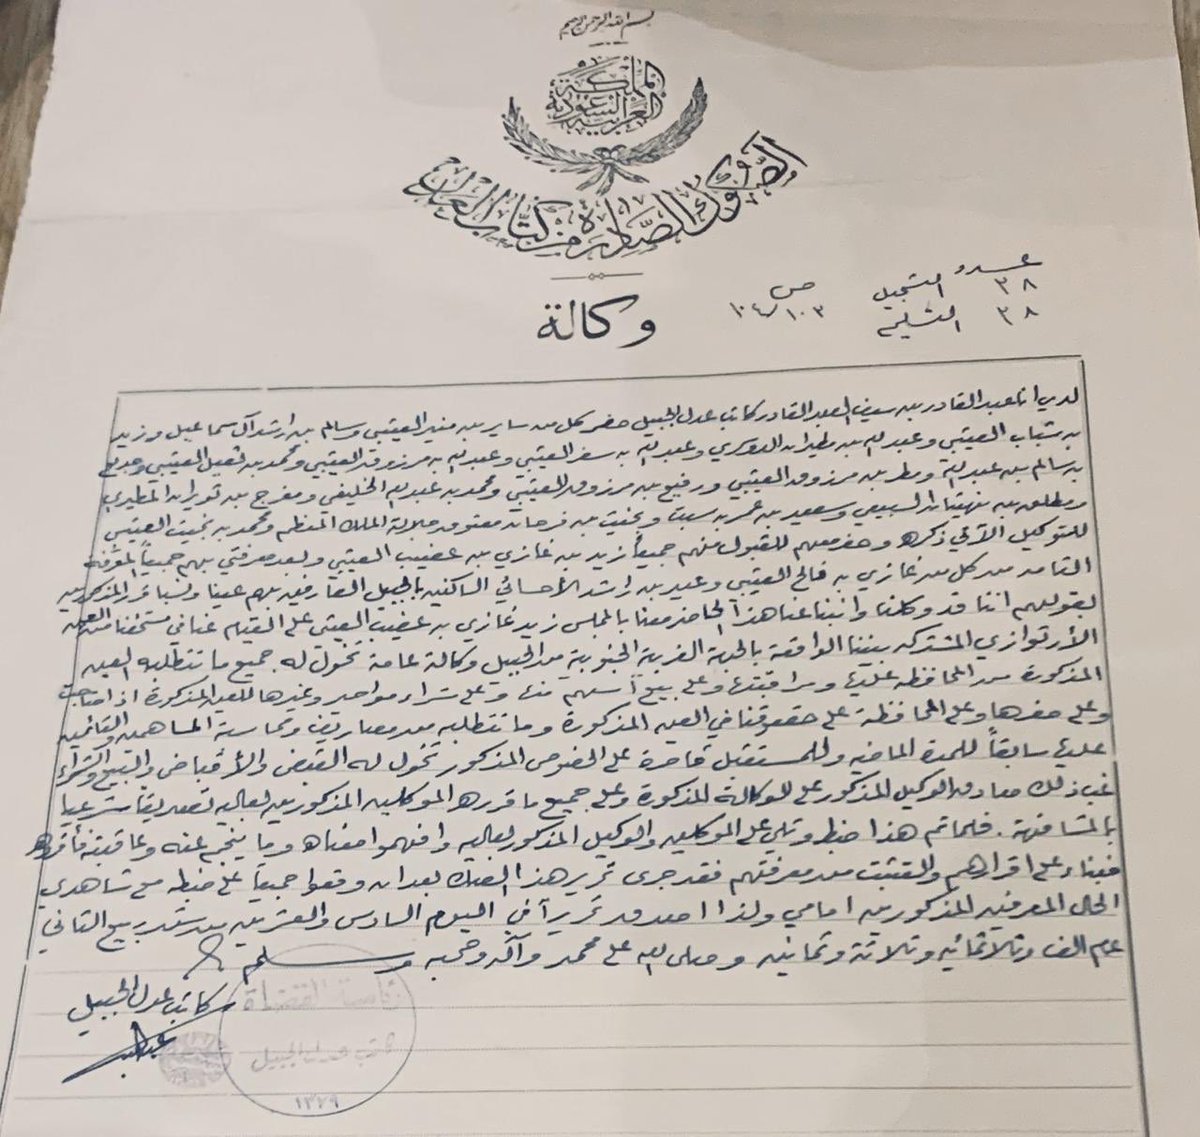 بسم الله الرحمن الرحيم
المملكة العربية السعودية
الصكوك الصادرة من كتاب العدل
عدد
٣٨ التسجيل ص
٣٨ التسليم ١٠٣/١٠٤
وكالة
لدي انا عبدالقادر بن سيف العبدالقادر كاتب عدل الجبيل حضر كل من ساير بن منير العتيبي وسالم بن ارشد آل سماعيل وزيد
بن شباب العتيبي وعبدالله بن مطيران الدوسري وعبدالله بن سفر العتيبي وعبدالله بن مرزوق العتيبي ومحمد بن ثعيل العتيبي
بن سالم بن عبدالله ومطر بن مرزوق العتيبي ورفيع بن مرزوق العتيبي ومحمد بن عبدالله الخليفي ومفرج بن ثويران المطيري
ومطلق بن السبيعي وسعيد بن عمر بن سبت وبخيت بن فرحان معتوق جلالة الملك المعظم ومحمد بن بخيت العتيبي
للتوكيل الآتي ذكره وحضر معهم للقبول منهم جميعاً زيد بن غازي بن عضيب العتيبي وبعد معرفتي بهم جميعاً المعرفة
التامة من كل من غازي بن فالح العتيبي وعبيد بن راشد الأحسائي الساكنين بالجبيل العارفين بهم عينا ونسبا قرر المذكورين
بقولهم اننا قد وكلنا وانبنا عنا هذا الحاضر معنا بالمجلس زيد غازي بن عضيب العتيبي على القيام عنا في مستحقنا من العين
الأرتوازي المشتركه بيننا الواقعة بالجهة الغربية الجنوبية من الجبيل وكالة عامة تخول له جميع ما تتطلبه العين
المذكورة من المحافظه عليها ومراقبتها وعلى بيع أسهم منها وعلى شراء مواحير وغيرها للعين المذكورة اذا احتاجت
وعلى حفرها وعلى المحافظة على حقوقنا في العين المذكورة وما تتطلبه من مصاريف ومحاسبة المساهمين والقائمين
عليها سابقاً للمدة الماضيه وللمستقبل قاصرة على الخصوص المذكور تخول له القبض والأقباض والبيع والشراء
غب ذلك صادق الوكيل المذكور على الوكالة المذكورة وعلى جميع ما قرره الموكلين المذكورين بعاليه تصديقا شرعيا
بالمشافهة . فلما تم هذا ضبط وتلي على الموكلين والوكيل المذكور بعاليه وافهموا معناه وما ينجم عنه وعاقبته فأقروه
فبناء على اقرارهم والتثبت من معرفتهم فقد جرى تحرير هذا الصك بعد ان وقعوا جميعاً على ضبطه مع شاهدي
الحال المعرفين المذكورين امامي ولذا اصدق تحريراً في اليوم السادس والعشرين من شهر ربيع الثاني
عام الف وثلاثمائه وثلاثة وثمانين وصلى الله على محمد وآله وصحبه وسلم
كاتب عدل الجبيل
رئاسة القضاة
كاتب عدل الجبيل
١٣٧٩